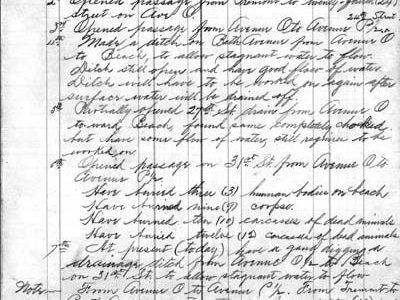 2nd Opened passage from Tremont to twenty fourth (24)
Street on Ave O. 24th Street
3rd Opened passage from Avenue O to Avenue P 1/2
4th Made a ditch on Bath Avenue from Avenue O
to Beach, to allow stagnant water to flow.
Ditch still open and have good flow of water.
Ditch will have to be worked on again after
surface water will be drained off.
5th Partially opened 27th St. drain from Avenue O
toward Beach, found same completely choked,
but have some flow of water, still requires to be
worked on
6th Opened passage on 31st St. from Avenue O to
Avenue P 1/2
Have buried three (3) human bodies on beach
Have burned nine (9) corpse.
Have burned ten (10) carcasses of dead animals
Have buried twelve (12) carcasses of dead animals
7th At present (today) have a gang digging a
drainage ditch from Avenue O 1/2 to Beach
on 31st St. to allow stagnant water to flow
Note From Avenue O to Avenue P 1/2. From Tremont to